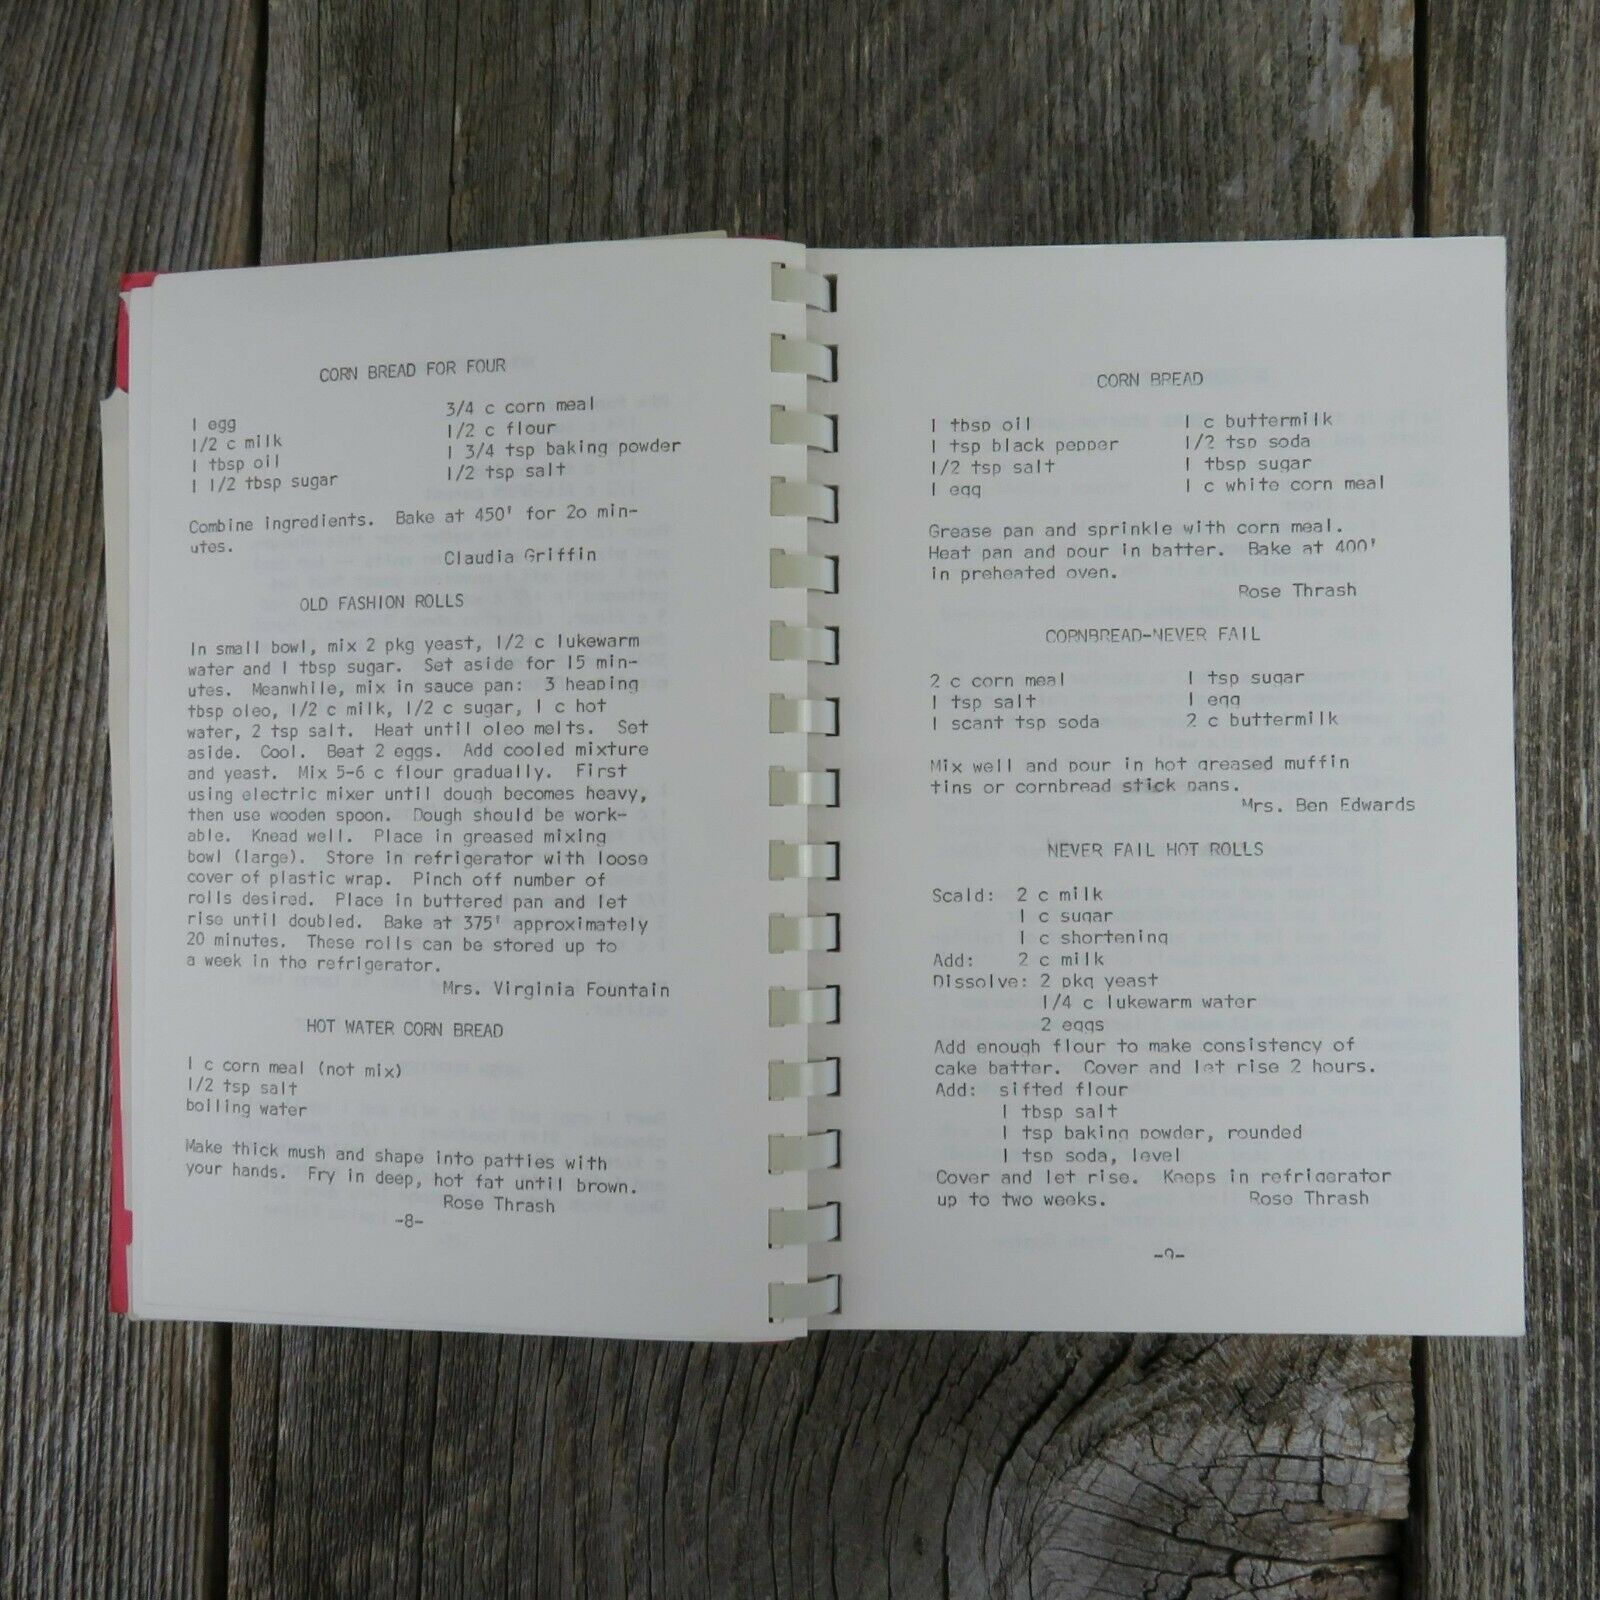 CORN BREAD FOR FOUR
1 egg
1/2 c milk
1 tbsp oil
1 1/2 tbsp sugar
3/4 c corn meal
1/2 c flour
1 3/4 tsp baking powder
1/2 tsp salt
Combine ingredients. Bake at 450' for 2o min-
utes.
Claudia Griffin
OLD FASHION ROLLS
In small bowl, mix 2 pkg yeast, 1/2 c lukewarm
water and 1 tbsp sugar. Set aside for 15 min-
utes. Meanwhile, mix in sauce pan: 3 heaping
tbsp oleo, 1/2 c milk, 1/2 c sugar, 1 c hot
water, 2 tsp salt. Heat until oleo melts. Set
aside. Cool. Beat 2 eggs. Add cooled mixture
and yeast. Mix 5-6 c flour gradually. First
using electric mixer until dough becomes heavy,
then use wooden spoon. Dough should be work-
able. Knead well. Place in greased mixing
bowl (large). Store in refrigerator with loose
cover of plastic wrap. Pinch off number of
rolls desired. Place in buttered pan and let
rise until doubled. Bake at 375' approximately
20 minutes. These rolls can be stored up to
a week in the refrigerator.
Mrs. Virginia Fountain
HOT WATER CORN BREAD
1 c corn meal (not mix)
1/2 tsp salt
boiling water
Make thick mush and shape into patties with
your hands. Fry in deep, hot fat until brown.
Rose Thrash
-8-
CORN BREAD
1 tbsp oil
1 tsp black pepper
1/2 tsp salt
1 egg
1 c buttermilk
1/2 tsp soda
1 tbsp sugar
1 c white corn meal
Grease pan and sprinkle with corn meal.
Heat pan and pour in batter. Bake at 400'
in preheated oven.
Rose Thrash
CORNBREAD-NEVER FAIL
2 c corn meal
1 tsp salt
1 scant tsp soda
1 tsp sugar
1 egg
2 c buttermilk
Mix well and pour in hot greased muffin
tins or cornbread stick pans.
Mrs. Ben Edwards
NEVER FAIL HOT ROLLS
Scald: 2 c milk
1 c sugar
1 c shortening
Add: 2 c milk
Dissolve: 2 pkg yeast
1/4 c lukewarm water
2 eggs
Add enough flour to make consistency of
cake batter. Cover and let rise 2 hours.
Add: sifted flour
1 tbsp salt
1 tsp baking powder, rounded
1 tsp soda, level
Cover and let rise. Keeps in refrigerator
up to two weeks. Rose Thrash
-9-